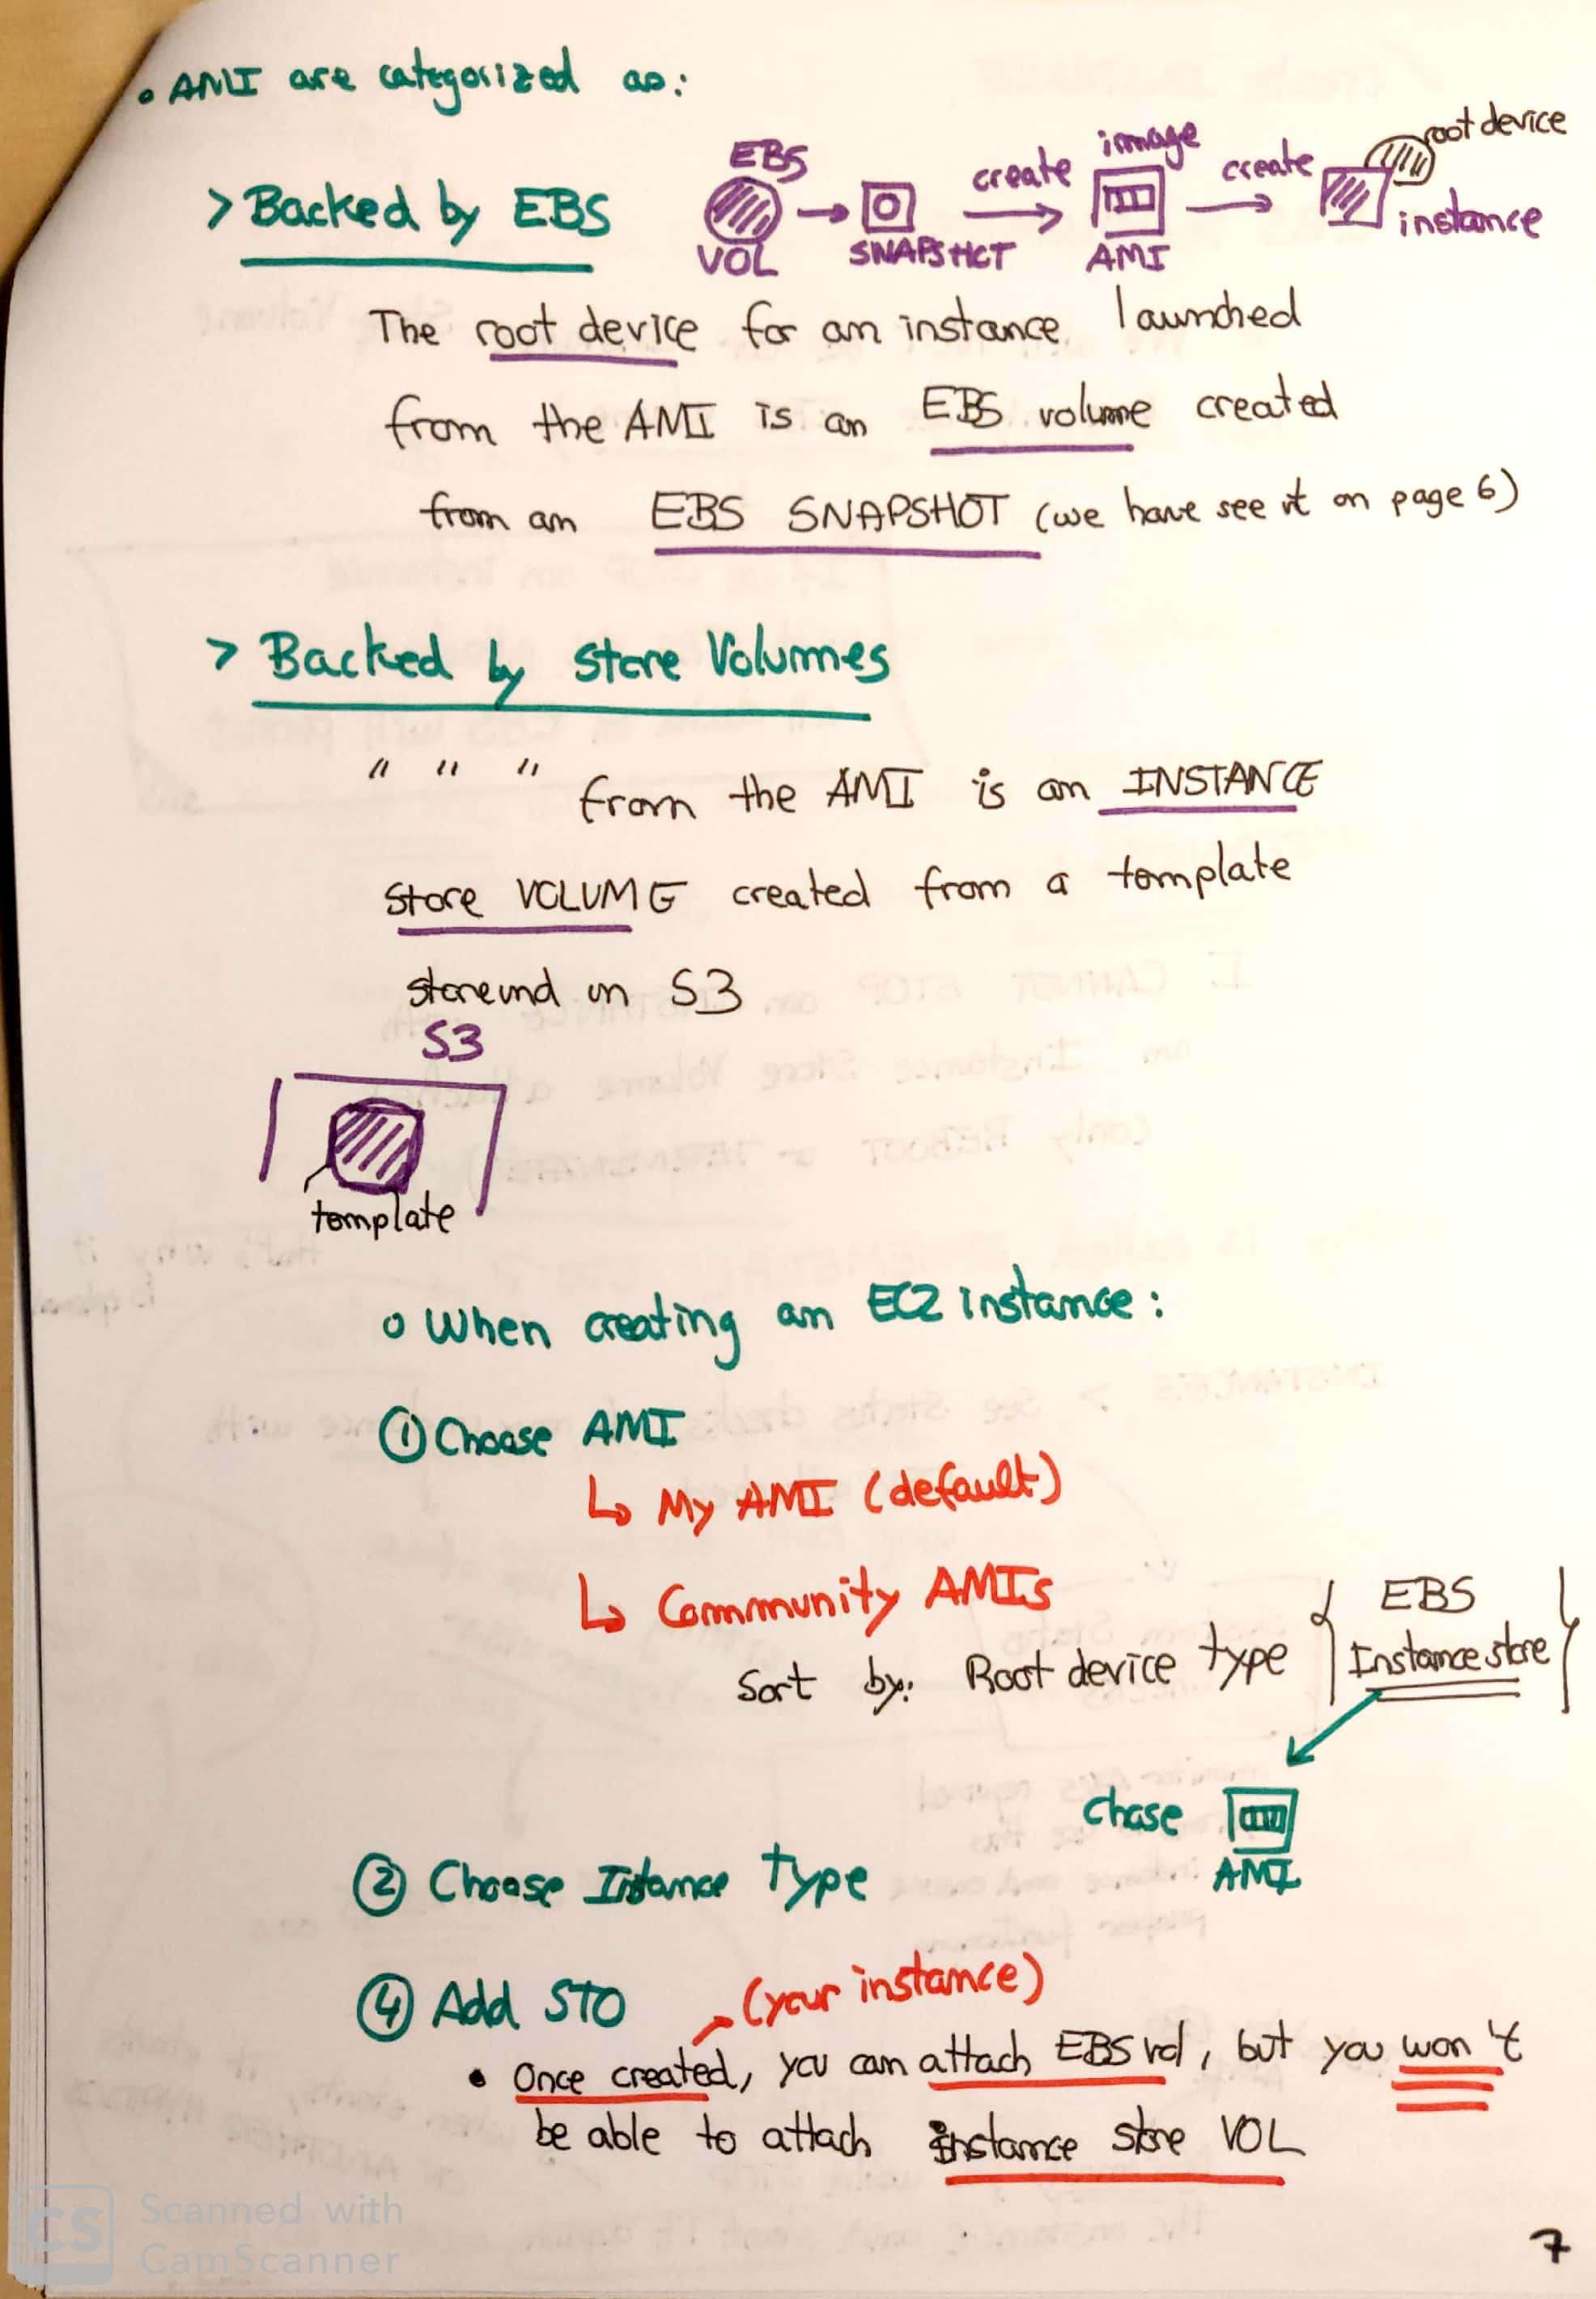 • AMI are categorized as:
> Backed by EBS
EBS
VOL
SNAPSHOT
create
image
AMI
create
root device
instance
The root device for an instance launched
from the AMI is an EBS volume created
from an EBS SNAPSHOT (we have see it on page 6)
> Backed by Store Volumes
" " " from the AMI is an INSTANCE
store VOLUME created from a template
storeund in S3
S3
template
o When creating an EC2 instance:
① Choose AMI
↳ My AMI (default)
↳ Community AMIs
Sort by: Root device type { EBS
Instance store }
chose
AMI
② Choose Instance Type
④ Add STO
(your instance)
• Once created, you can attach EBS vol, but you won't
be able to attach instance store VOL
CS Scanned with
CamScanner
7